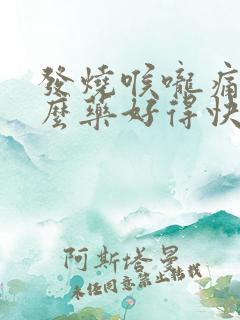 發燒喉嚨痛
麼藥好得快
阿斯塔曼
未经同意禁止转载